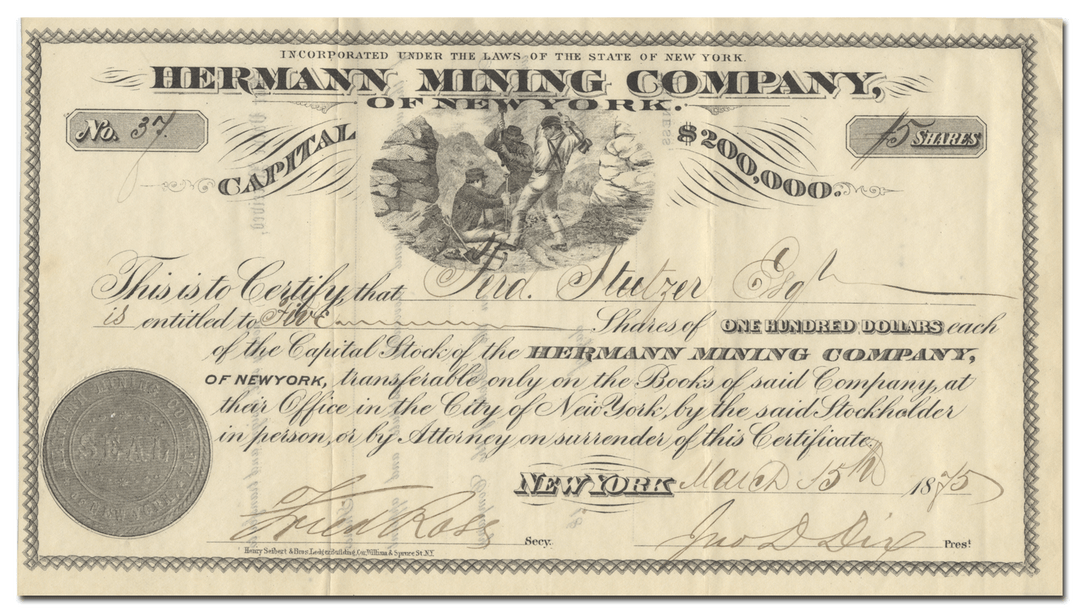 INCORPORATED UNDER THE LAWS OF THE STATE OF NEW YORK.
HERMANN MINING COMPANY,
OF NEW YORK.
No. 37.
CAPITAL $200,000.
5 SHARES
This is to Certify, that Ferd. Stutzer Esq
is entitled to Five Shares of ONE HUNDRED DOLLARS each
of the Capital Stock of the HERMANN MINING COMPANY,
OF NEW YORK, transferable only on the Books of said Company, at
their Office in the City of New York, by the said Stockholder
in person, or by Attorney on surrender of this Certificate.
SEAL
NEW YORK.
NEW YORK March 15th 1875
Fried Ross Secy.
Jno D Dix Prest
Henry Seibert & Bros. Ledger Building, Cor. William & Spruce St. N.Y.